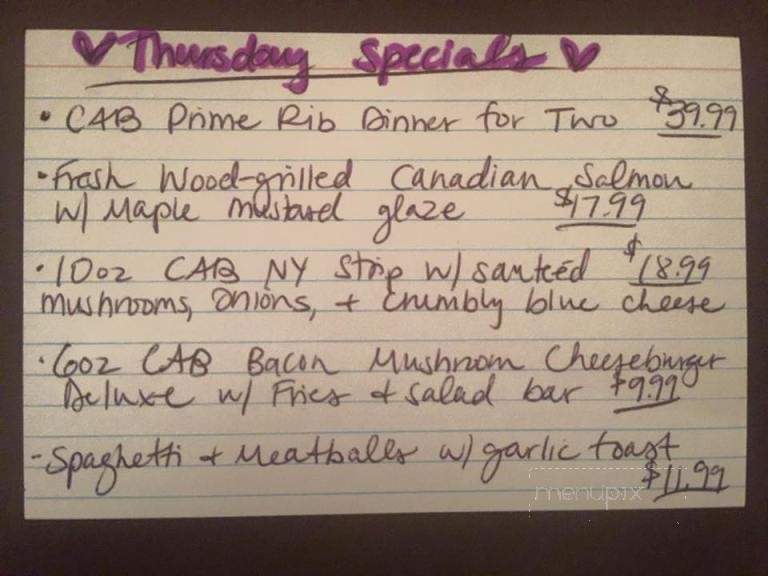 ♥ Thursday Specials ♥
• CAB Prime Rib Dinner for Two $39.99
• Fresh Wood-grilled Canadian Salmon
w/ Maple mustard glaze $17.99
• 10oz CAB NY Strip w/ sautéed $18.99
mushrooms, onions, + crumbly blue cheese
• 6oz CAB Bacon Mushroom Cheeseburger
Deluxe w/ Fries + salad bar $9.99
- Spaghetti + Meatballs w/ garlic toast
$11.99
menupix